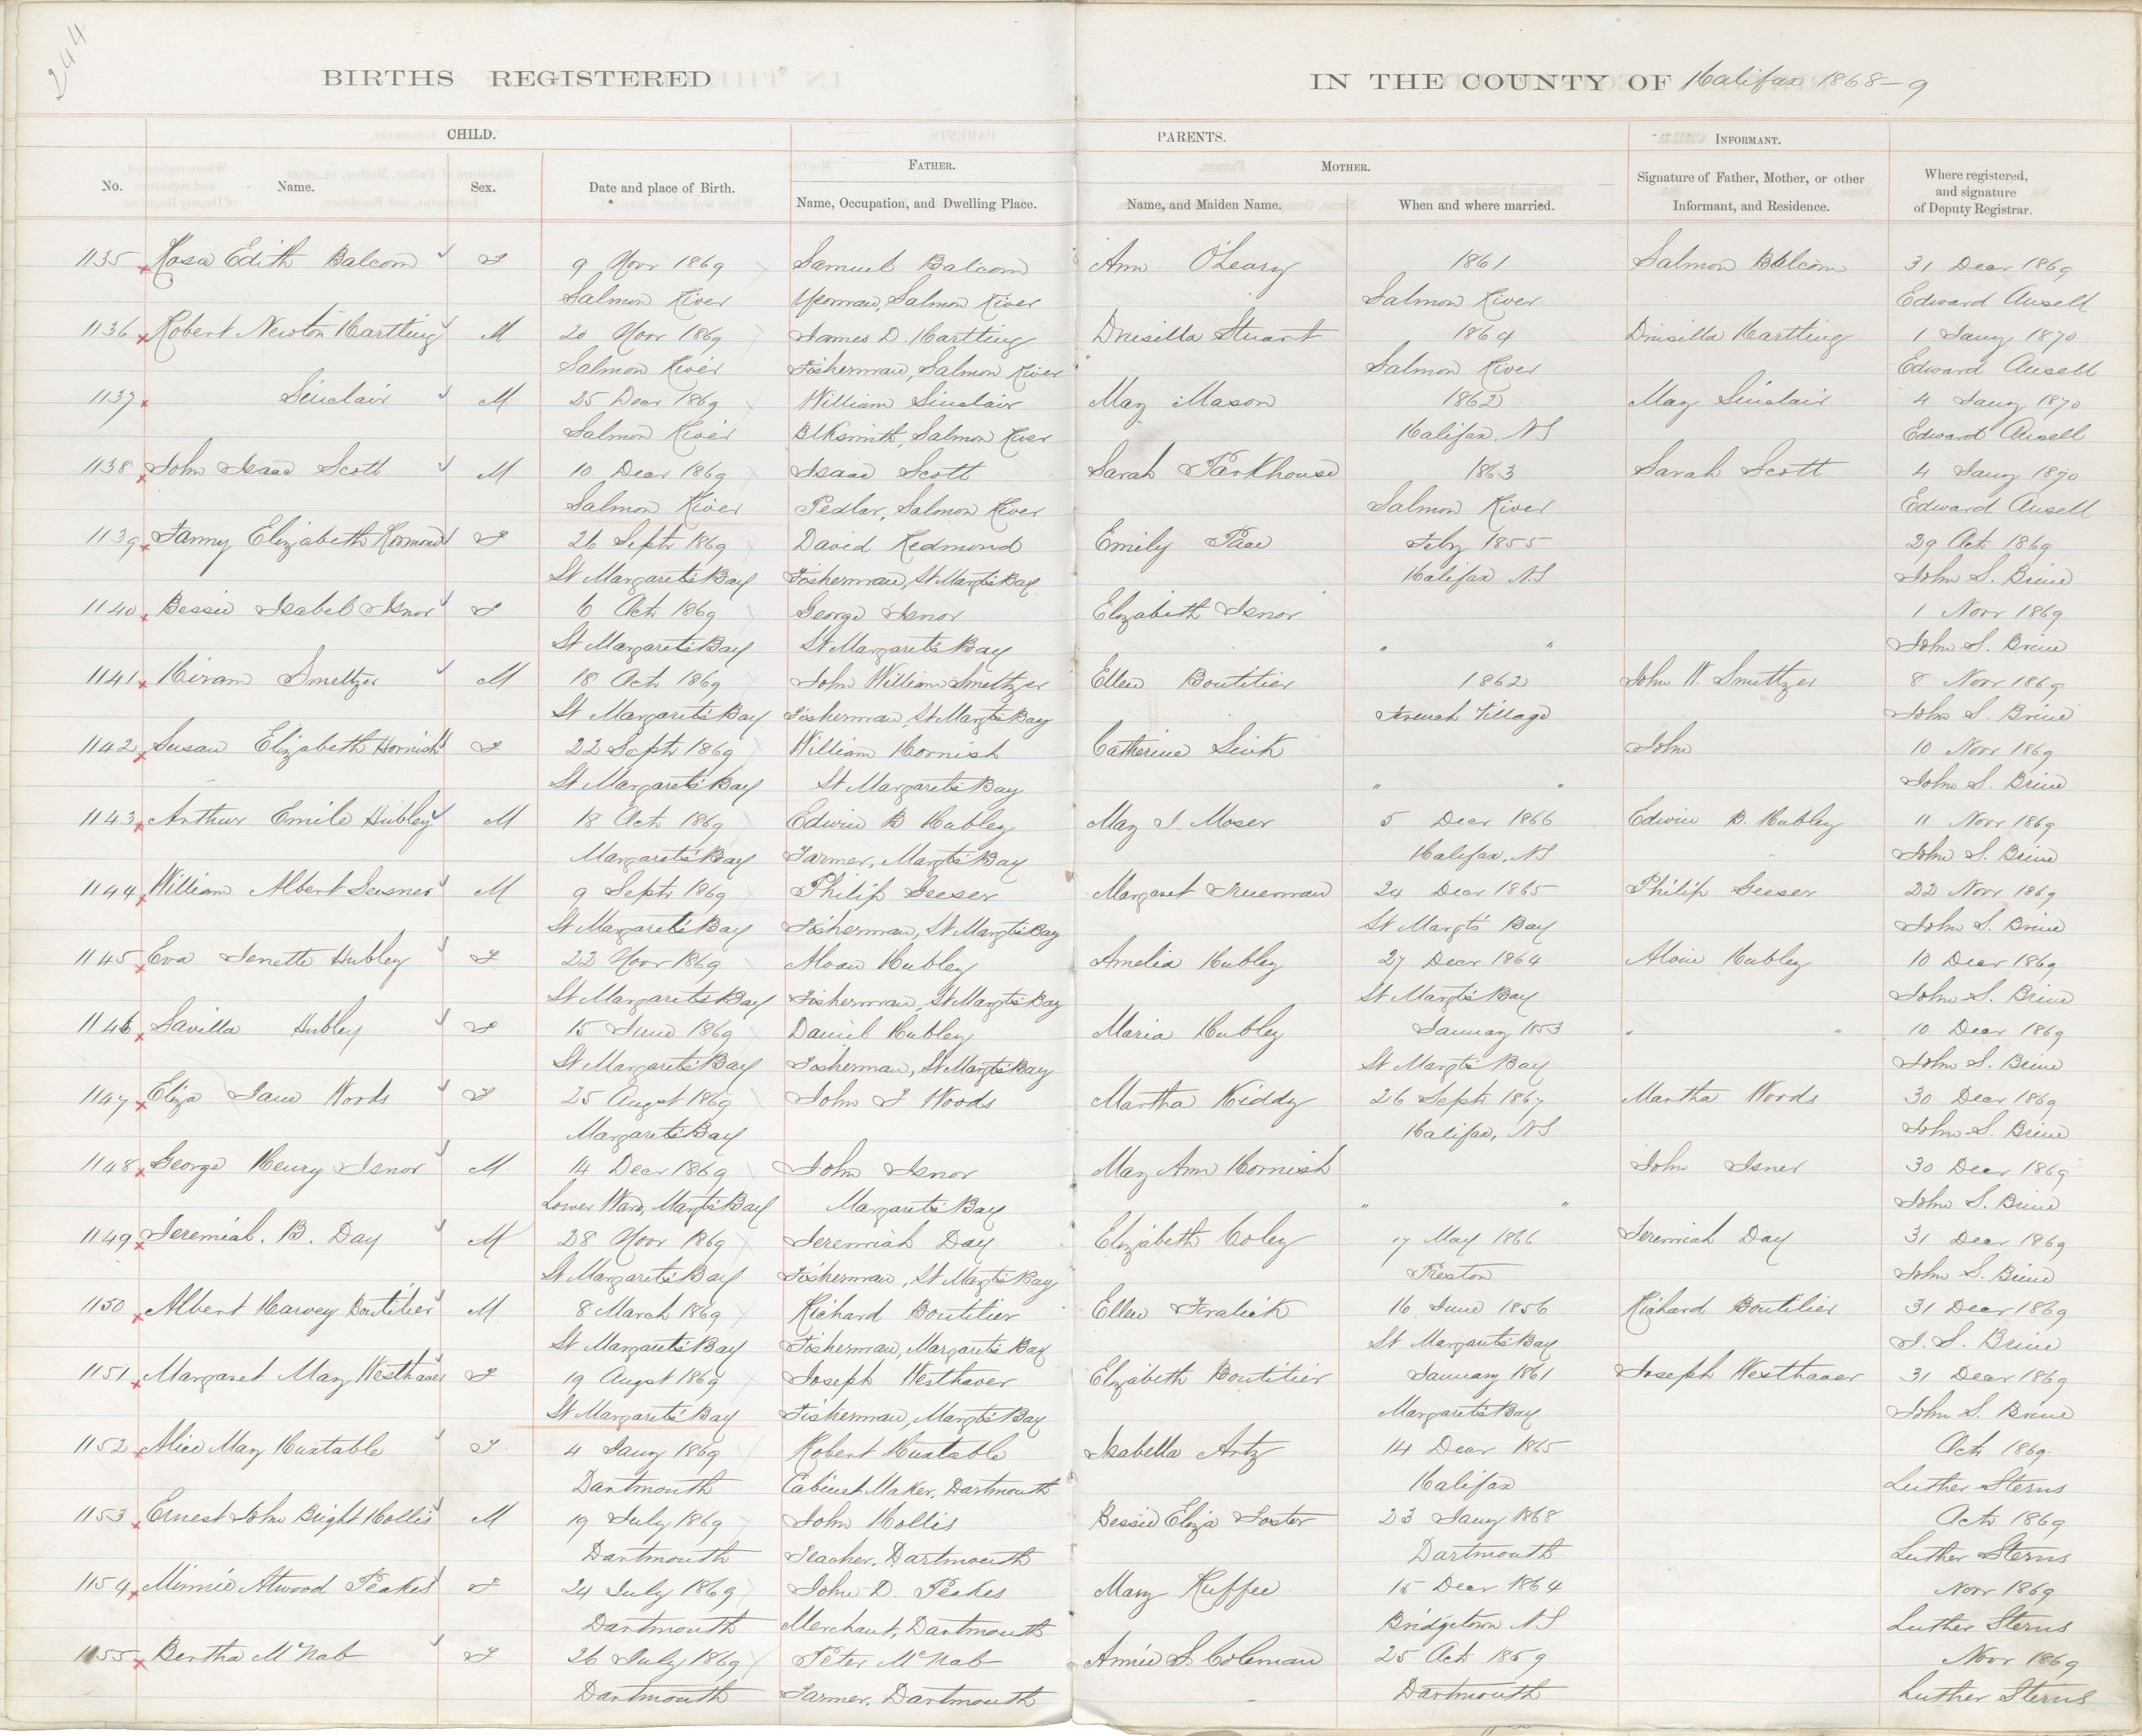 244
BIRTHS REGISTERED IN THE COUNTY OF Halifax 1868-9
CHILD. PARENTS. INFORMANT.
No. Name. Sex. Date and place of Birth. FATHER. Name, Occupation, and Dwelling Place. MOTHER. Name, and Maiden Name. When and where married. Signature of Father, Mother, or other Informant, and Residence. Where registered, and signature of Deputy Registrar.
1135 Rosa Edith Balcom F 9 Novr 1869 Samuel Balcom Ann O'Leary 1861 Salmon Balcom 31 Decr 1869
Salmon River Yeoman, Salmon River Salmon River Edward Ansell
1136 Robert Newton Hartling M 20 Novr 1869 James D. Hartling Drusilla Stuart 1864 Drusilla Hartling 1 Jany 1870
Salmon River Fisherman, Salmon River Salmon River Edward Ansell
1137 Sinclair M 25 Decr 1869 William Sinclair May Mason 1862 May Sinclair 4 Jany 1870
Salmon River Blksmith, Salmon River Halifax. NS Edward Ansell
1138 John Isaac Scott M 10 Decr 1869 Isaac Scott Sarah Parkhouse 1863 Sarah Scott 4 Jany 1870
Salmon River Pedlar, Salmon River Salmon River Edward Ansell
1139 Fanny Elizabeth Redmond F 26 Septr 1869 David Redmond Emily Pace Feby 1855 29 Oct 1869
St Margaret's Bay Fisherman, St Margts Bay Halifax NS John S. Brine
1140 Bessie Isabel Isnor F 6 Oct 1869 George Isnor Elizabeth Isnor 1 Novr 1869
St Margaret's Bay St Margarets Bay " " John S. Brine
1141 Hiram Smeltzer M 18 Oct 1869 John William Smeltzer Ellen Boutilier 1862 John W. Smeltzer 8 Novr 1869
St Margaret's Bay Fisherman, St Margts Bay French Village John S. Brine
1142 Susan Elizabeth Hornish F 22 Septr 1869 William Hornish Catherine Sink John 10 Novr 1869
St Margaret's Bay St Margarets Bay " " John S. Brine
1143 Arthur Emile Hubley M 18 Oct 1869 Edwin B Hubley May J. Moser 5 Decr 1866 Edwin B. Hubley 11 Novr 1869
Margaret's Bay Farmer, Margts Bay Halifax, NS John S. Brine
1144 William Albert Geesner M 9 Septr 1869 Philip Geeser Margaret Trueman 24 Decr 1865 Philip Geeser 22 Novr 1869
St Margaret's Bay Fisherman, St Margts Bay St Margts Bay John S. Brine
1145 Eva Jenette Hubley F 22 Novr 1869 Aloan Hubley Amelia Hubley 27 Decr 1864 Aloin Hubley 10 Decr 1869
St Margaret's Bay Fisherman, St Margts Bay St Margts Bay John S. Brine
1146 Savilla Hubley F 15 June 1869 Daniel Hubley Maria Hubley January 1853 " " 10 Decr 1869
St Margaret's Bay Fisherman, St Margts Bay St Margts Bay John S. Brine
1147 Eliza Jane Woods F 25 Augst 1869 John J Woods Martha Kiddy 26 Septr 1867 Martha Woods 30 Decr 1869
Margaret's Bay Halifax, NS John S. Brine
1148 George Henry Isnor M 14 Decr 1869 John Isnor May Ann Hornish John Isner 30 Decr 1869
Lower Ward, Margts Bay Margarets Bay " " John S. Brine
1149 Jeremiah. B. Day M 28 Novr 1869 Jeremiah Day Elizabeth Coley 17 May 1866 Jeremiah Day 31 Decr 1869
St Margaret's Bay Fisherman, St Margts Bay Preston John S. Brine
1150 Albert Harvey Boutilier M 8 March 1869 Richard Boutilier Ellen Fralick 16 June 1856 Richard Boutilier 31 Decr 1869
St Margaret's Bay Fisherman, Margarets Bay St Margarets Bay J. S. Brine
1151 Margaret May Westhaver F 19 Augst 1869 Joseph Westhaver Elizabeth Boutilier January 1861 Joseph Westhaver 31 Decr 1869
St Margaret's Bay Fisherman, Margts Bay Margarets Bay John S. Brine
1152 Alice May Huxtable F 4 Jany 1869 Robert Huxtable Isabella Artz 14 Decr 1865 Oct 1869
Dartmouth Cabinet Maker, Dartmouth Halifax Luther Sterns
1153 Ernest John Bright Hollis M 19 July 1869 John Hollis Bessie Eliza Foster 23 Jany 1868 Oct 1869
Dartmouth Teacher. Dartmouth Dartmouth Luther Sterns
1154 Minnie Atwood Peakes F 24 July 1869 John D. Peakes Mary Ruffee 15 Decr 1864 Novr 1869
Dartmouth Merchant, Dartmouth Bridgetown NS Luther Sterns
1155 Bertha McNab F 26 July 1869 Peter McNab Annie S. Coleman 25 Oct 1859 Novr 1869
Dartmouth Farmer, Dartmouth Dartmouth Luther Sterns